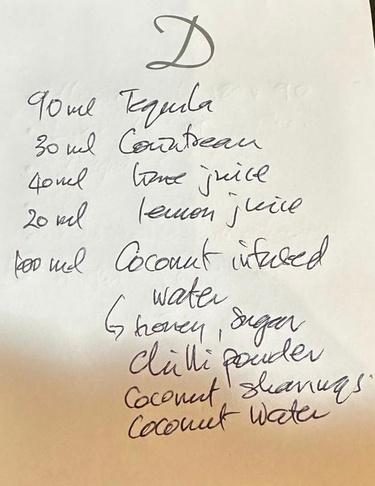 D
90ml Tequila
30ml Cointreau
40ml lime juice
20ml lemon juice
100ml Coconut infused
water
↳ honey, sugar
chilli powder
Coconut shavings
Coconut water